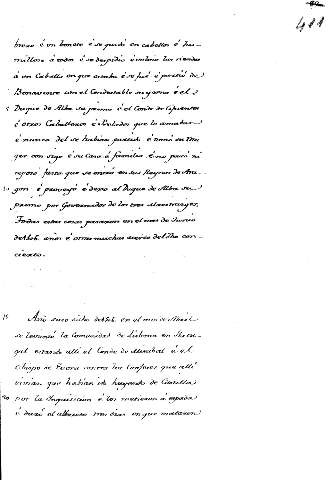 411
braço é un bonete é se quedó en cabellos é hu-
millose á todos é se despidio é volvio las riendas
á un Caballo en que andaba é se fué é partió de
Benavente con el Condestable su yerno é el
5 Duque de Alba su primo é el Conde de Cifuentes
é otros Caballeros é Perlados que lo amaban
é nunca del se habian partido é tomó su Mu-
ger con sigo é su Casa é familia é no paró ni
reposo fasta que se entró en sus Reynos de Ara-
10 gon é proveyó é dexo al Duque de Alba su
primo por Governador de los tres Maestrazgos.
Todas estas cosas pasaron en el mes de Junio
de 1506. años é otras muchas acerca del dho con-
cierto.
15 Año suso dicho de 1506. en el mes de Abril
se levantó la Comunidad de Lisbona en Portu-
gal estando allí el Conde de Marialba é el
Obispo de Evora contra los Confesos que allí
vivian, que habian ido huyendo de Castilla
20 por la Inquisicion é los metieron á espada
é duró el alboroto tres dias en que mataron